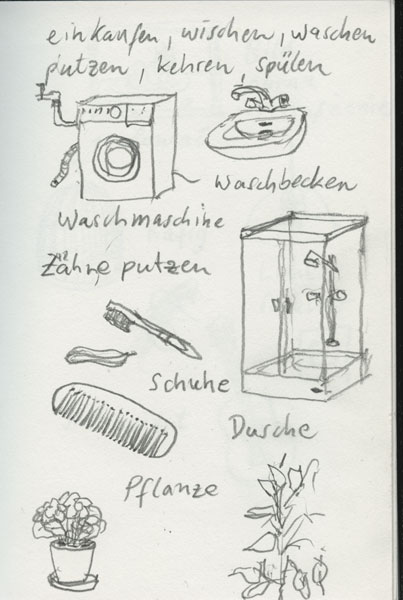 einkaufen, wischen, waschen
putzen, kehren, spülen
Waschbecken
Waschmaschine
Zähne putzen
Schuhe
Dusche
Pflanze